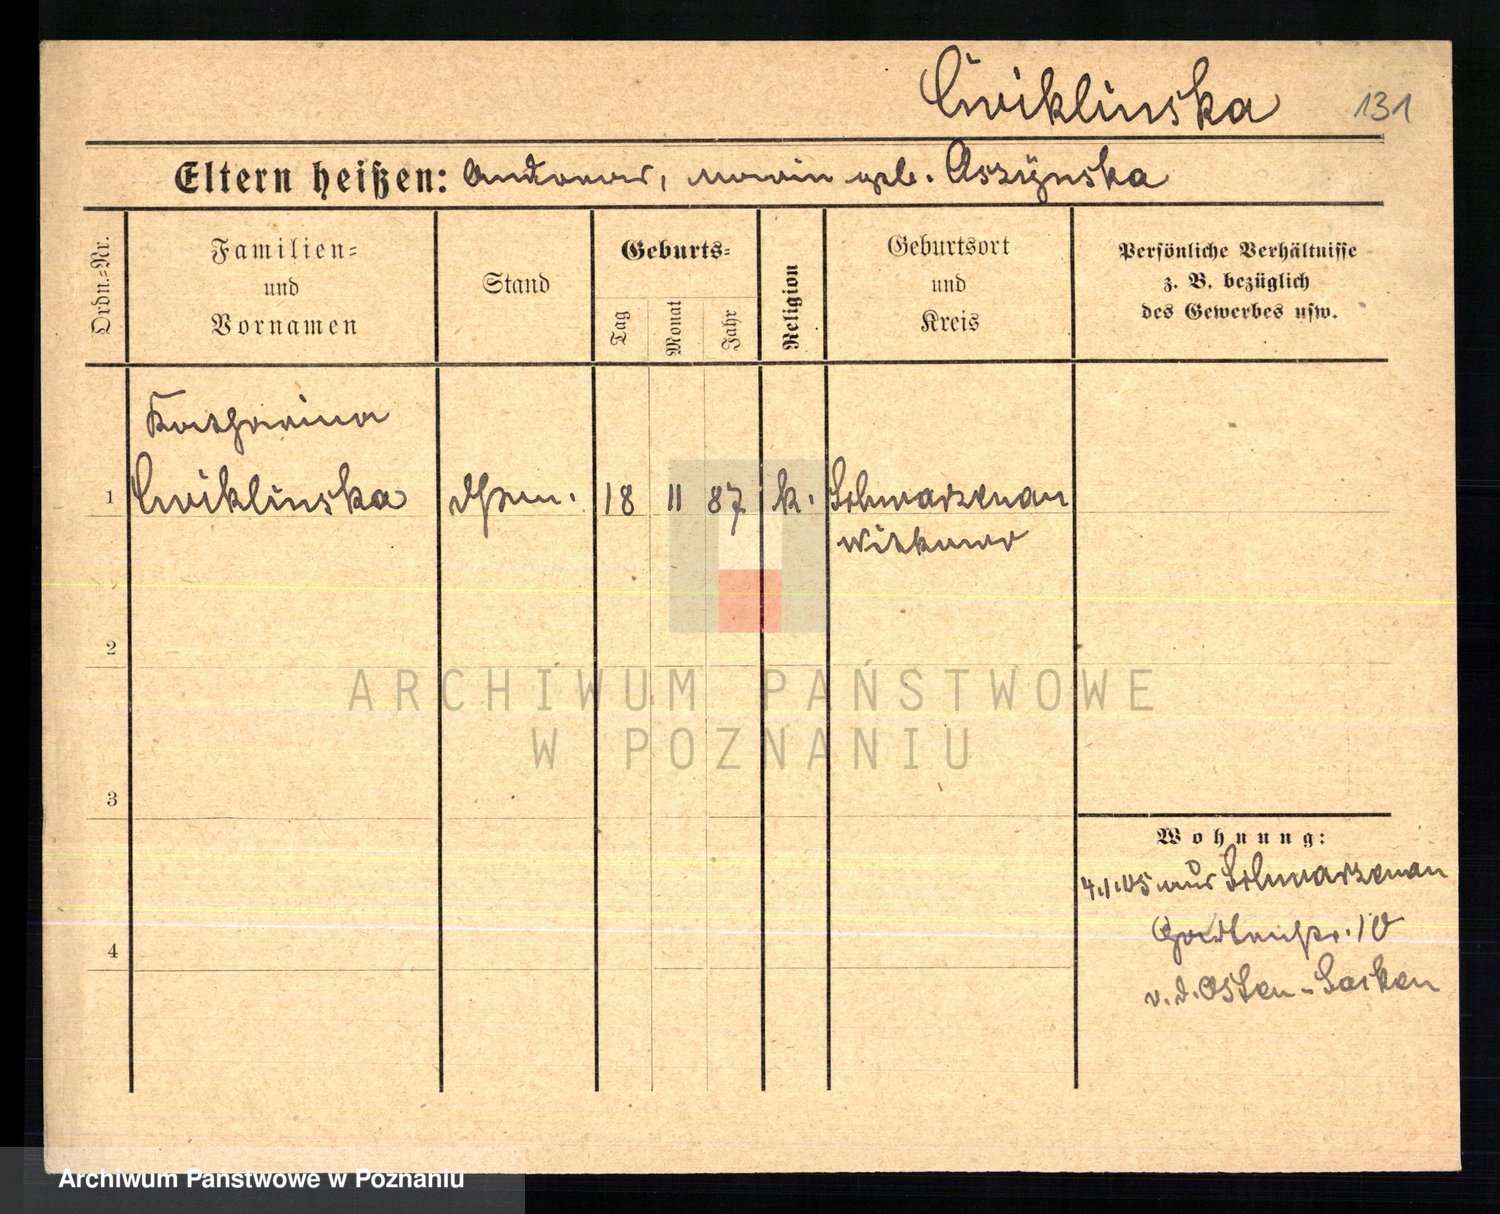 Ćwiklinska 131
Eltern heißen: Andreas, Marie geb. Aszynska
Ordn.=Nr.
Familien=
und
Vornamen
Stand
Geburts=
Tag
Monat
Jahr
Religion
Geburtsort
und
Kreis
Persönliche Verhältnisse
z. B. bezüglich
des Gewerbes usw.
Katharina
1 Cwiklinska 18 11 87 k. Schwarzenau
Witkowo
2
3
4
Wohnung:
4.1.05 aus Schwarzenau
Gartenstr. 10
v. d. Osten-Sacken
ARCHIWUM PAŃSTWOWE
W POZNANIU
Archiwum Państwowe w Poznaniu